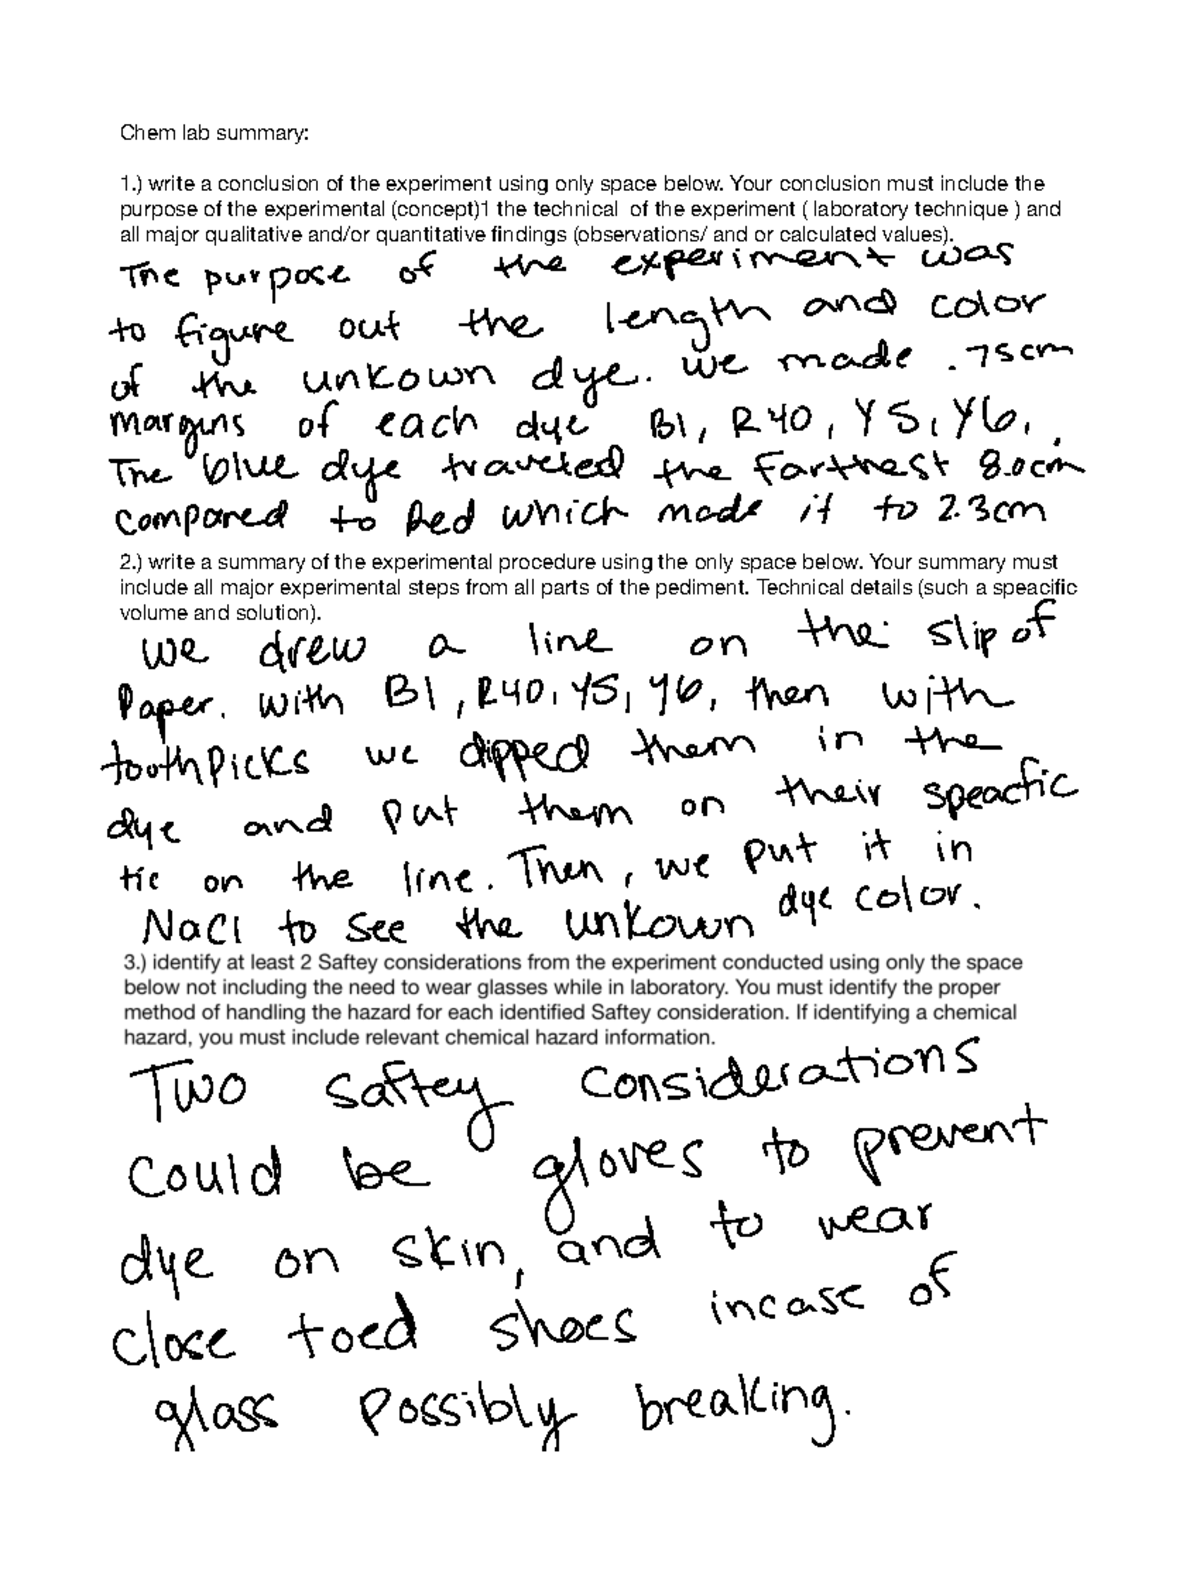 Chem lab summary:
1.) write a conclusion of the experiment using only space below. Your conclusion must include the
purpose of the experimental (concept)1 the technical of the experiment ( laboratory technique ) and
all major qualitative and/or quantitative findings (observations/ and or calculated values).
The purpose of the experiment was
to figure out the length and color
of the unkown dye. we made .75cm
margins of each dye B1, R40, Y5, Y6, .
The blue dye traveled the farthest 8.0cm
compared to Red which made it to 2.3cm
2.) write a summary of the experimental procedure using the only space below. Your summary must
include all major experimental steps from all parts of the pediment. Technical details (such a speacific
volume and solution).
We drew a line on the slip of
Paper. with B1, R40, Y5, Y6, then with
toothPicks we dipped them in the
dye and put them on their speacfic
tic on the line. Then, we put it in
NaCl to see the unkown dye color.
3.) identify at least 2 Saftey considerations from the experiment conducted using only the space
below not including the need to wear glasses while in laboratory. You must identify the proper
method of handling the hazard for each identified Saftey consideration. If identifying a chemical
hazard, you must include relevant chemical hazard information.
Two saftey considerations
could be gloves to prevent
dye on skin, and to wear
close toed shoes incase of
glass possibly breaking.